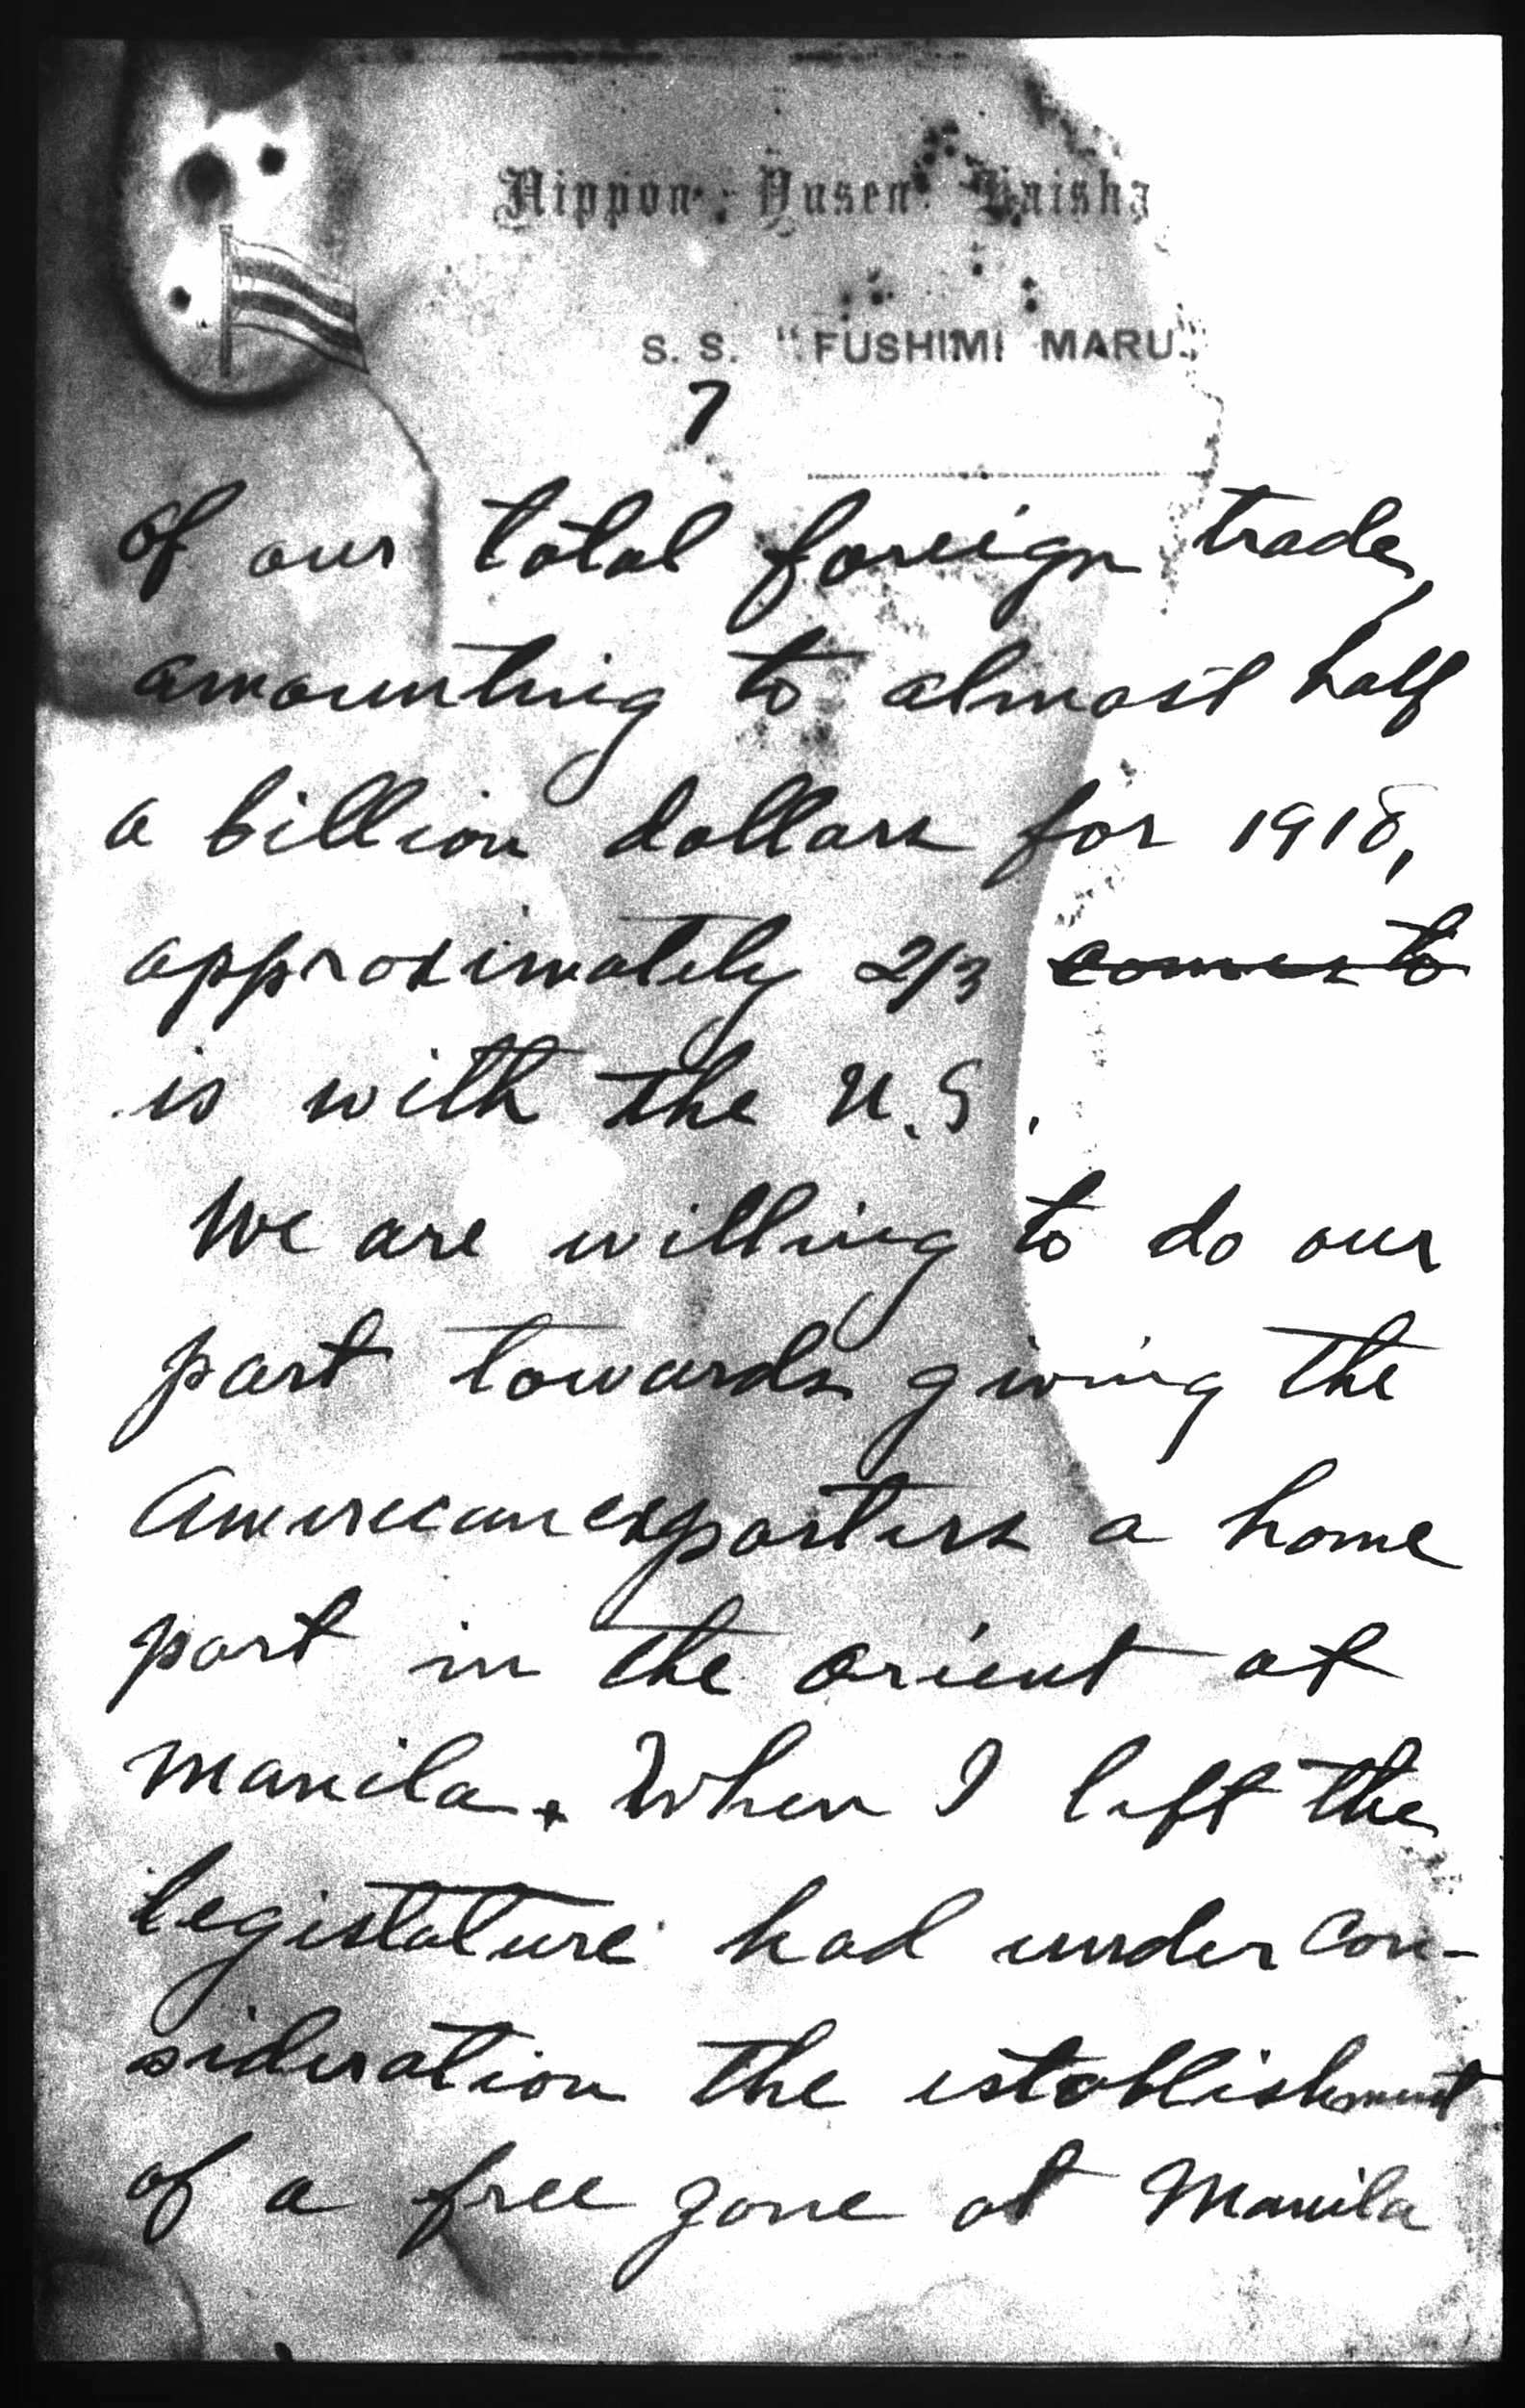 Nippon Yusen Kaisha
S. S. "FUSHIMI MARU"
7
of our total foreign trade,
amounting to almost half
a billion dollars for 1918,
approximately 2/3 comes to
is with the U.S.
We are willing to do our
part towards giving the
American exporters a home
port in the orient at
Manila. When I left the
legislature had under con-
sideration the establishment
of a free zone at Manila